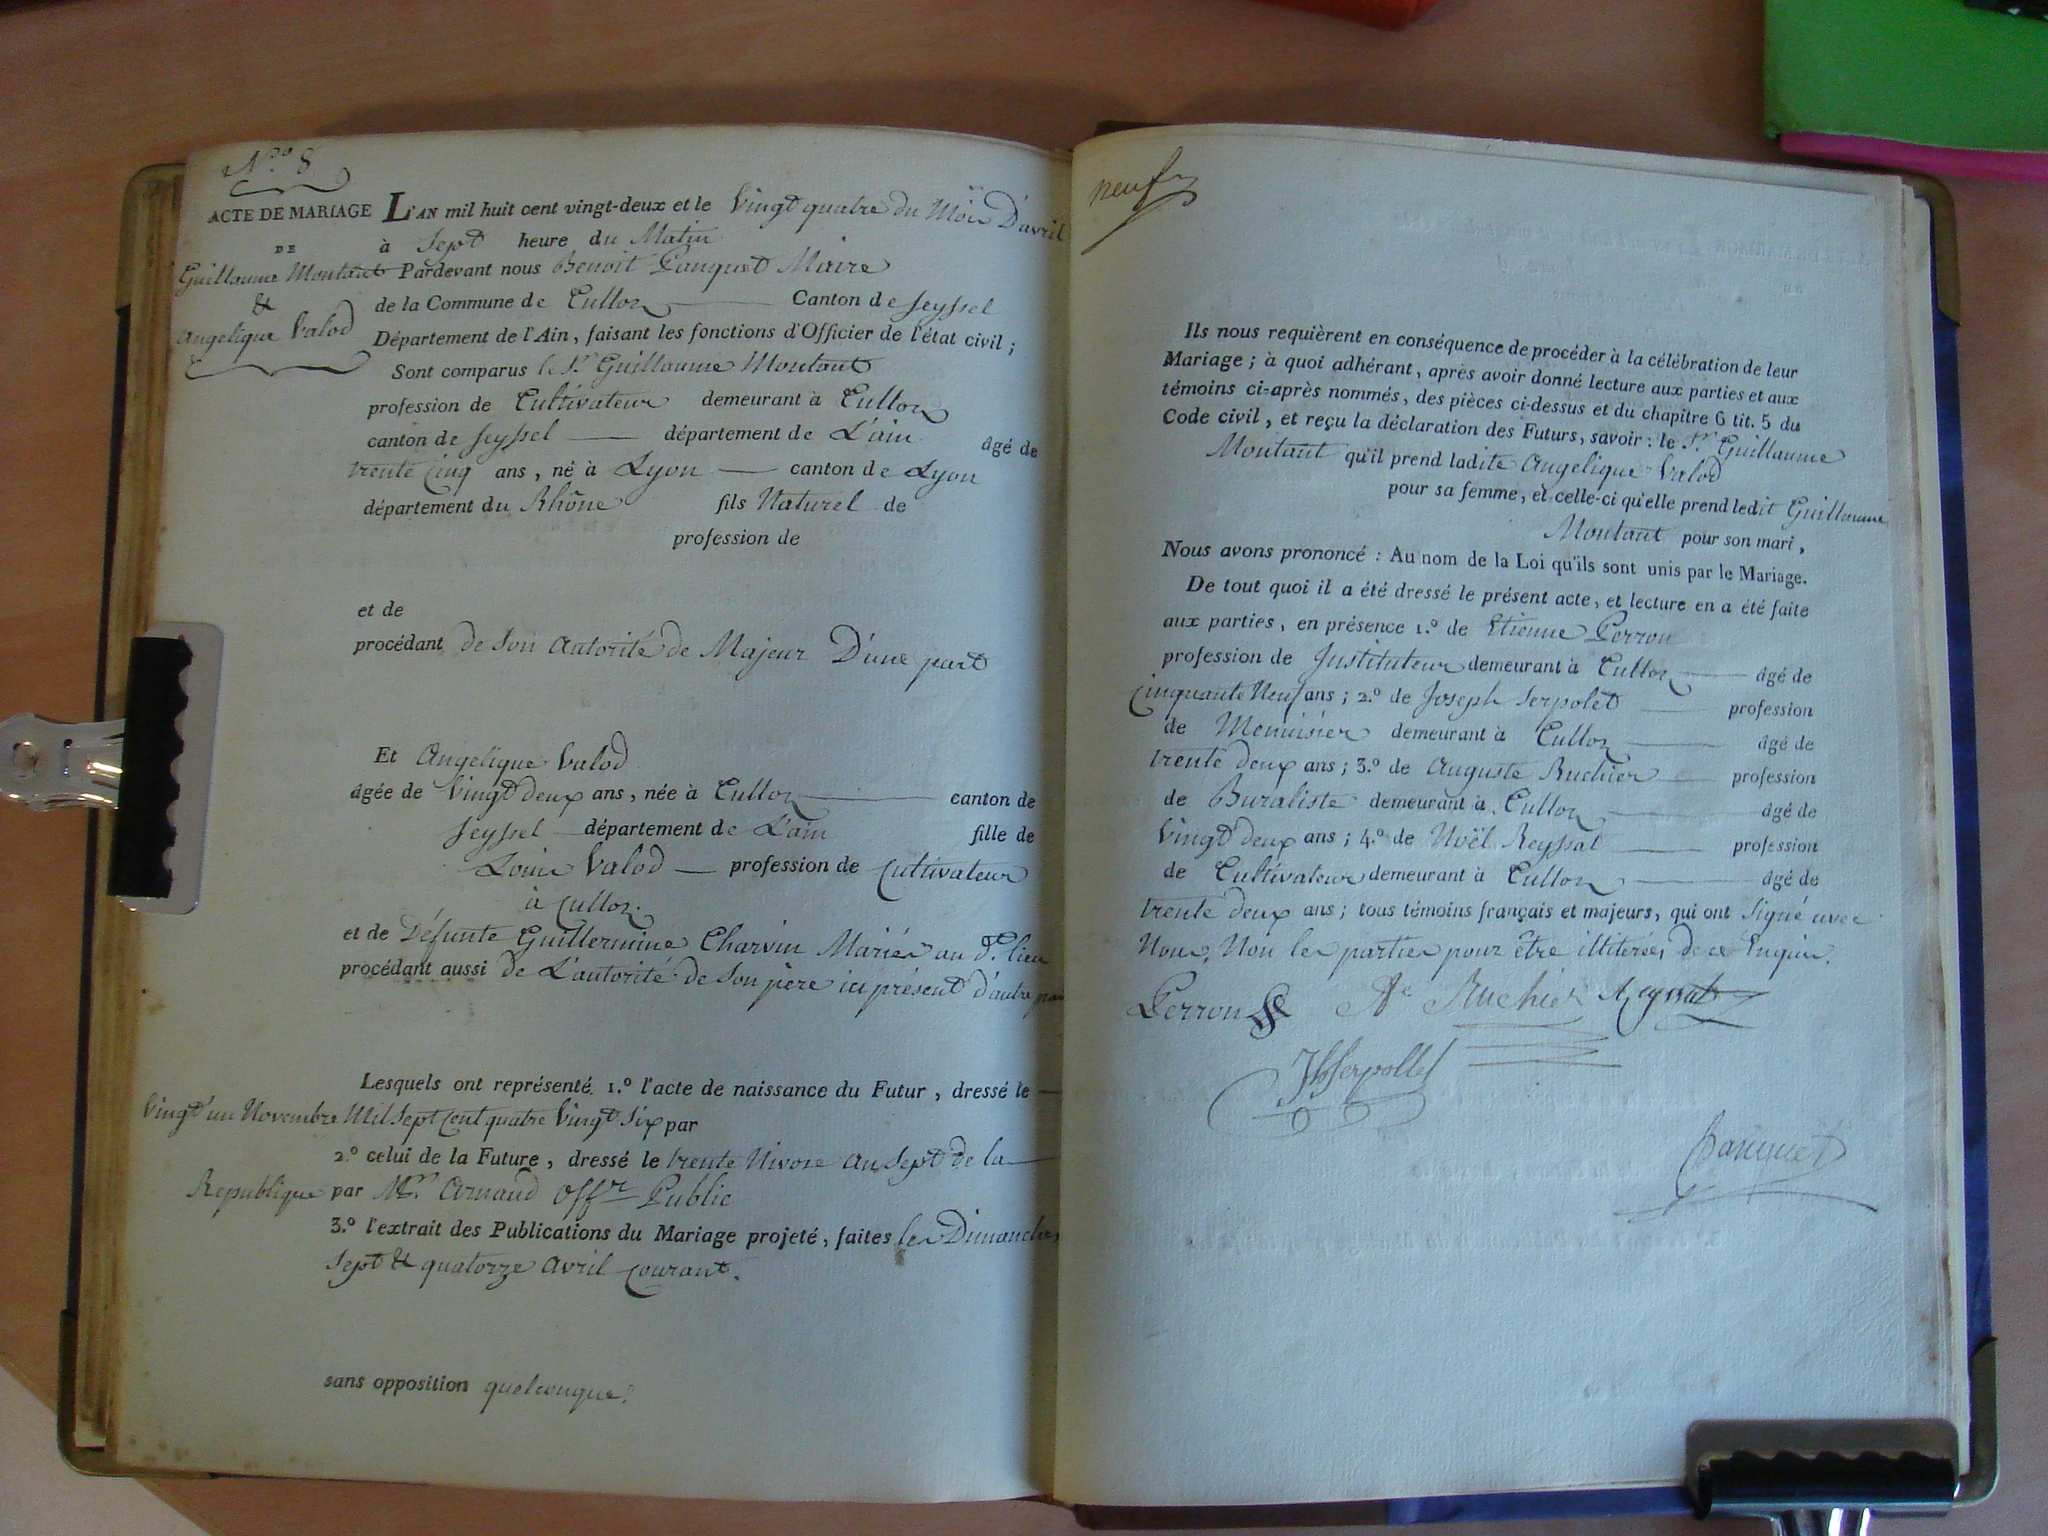 N.º 8
ACTE DE MARIAGE
DE
Guillaume Montant
&
Angelique Valod
L'AN mil huit cent vingt-deux et le Vingt quatre du Mois D'avril
à Sept heure du Matin
Pardevant nous Benoit Panquet Maire
de la Commune de Culloz Canton de Seyssel
Département de l'Ain, faisant les fonctions d'Officier de l'état civil ;
Sont comparus le Sr Guillaume Montant
profession de Cultivateur demeurant à Culloz
canton de Seyssel département de L'ain âgé de
trente Cinq ans, né à Lyon canton de Lyon
département du Rhône fils Naturel de
profession de
et de
procédant de Son Autorité de Majeur D'une part
Et Angelique Valod
âgée de Vingt deux ans, née à Culloz canton de
Seyssel département de L'ain fille de
Louis Valod profession de Cultivateur
à Culloz.
et de Défunte Guillermine Charvin Mariés au dt. lieu
procédant aussi de L'autorité de Son père ici présent d'autre part
Lesquels ont représenté 1.º l'acte de naissance du Futur, dressé le
Vingt un Novembre Mil Sept Cent quatre Vingt Six par
2.º celui de la Future, dressé le trente Nivose an Sept de la
Republique par Mr. Arnaud Offr Public
3.º l'extrait des Publications du Mariage projeté, faites les Dimanches
Sept & quatorze Avril Courant.
sans opposition quelconque.
neuf
Ils nous requièrent en conséquence de procéder à la célébration de leur
Mariage ; à quoi adhérant, après avoir donné lecture aux parties et aux
témoins ci-après nommés, des pièces ci-dessus et du chapitre 6 tit. 5 du
Code civil, et reçu la déclaration des Futurs, savoir : le Sr Guillaume
Montant qu'il prend ladite Angelique Valod
pour sa femme, et celle-ci qu'elle prend ledit Guillaume
Montant pour son mari,
Nous avons prononcé : Au nom de la Loi qu'ils sont unis par le Mariage.
De tout quoi il a été dressé le présent acte, et lecture en a été faite
aux parties, en présence 1.º de Etienne Perron
profession de Instituteur demeurant à Culloz âgé de
Cinquante Neuf ans ; 2.º de Joseph Serpolet profession
de Menuisier demeurant à Culloz âgé de
trente deux ans ; 3.º de Auguste Ruchier profession
de Buraliste demeurant à Culloz âgé de
Vingt deux ans ; 4.º de Noël Reyssat profession
de Cultivateur demeurant à Culloz âgé de
trente deux ans ; tous témoins français et majeurs, qui ont Signé avec
Nous, Non les parties pour être illitérés, de ce Enquis.
Perron Ate Ruchier Reyssat
Jh Serpollet
Panquet